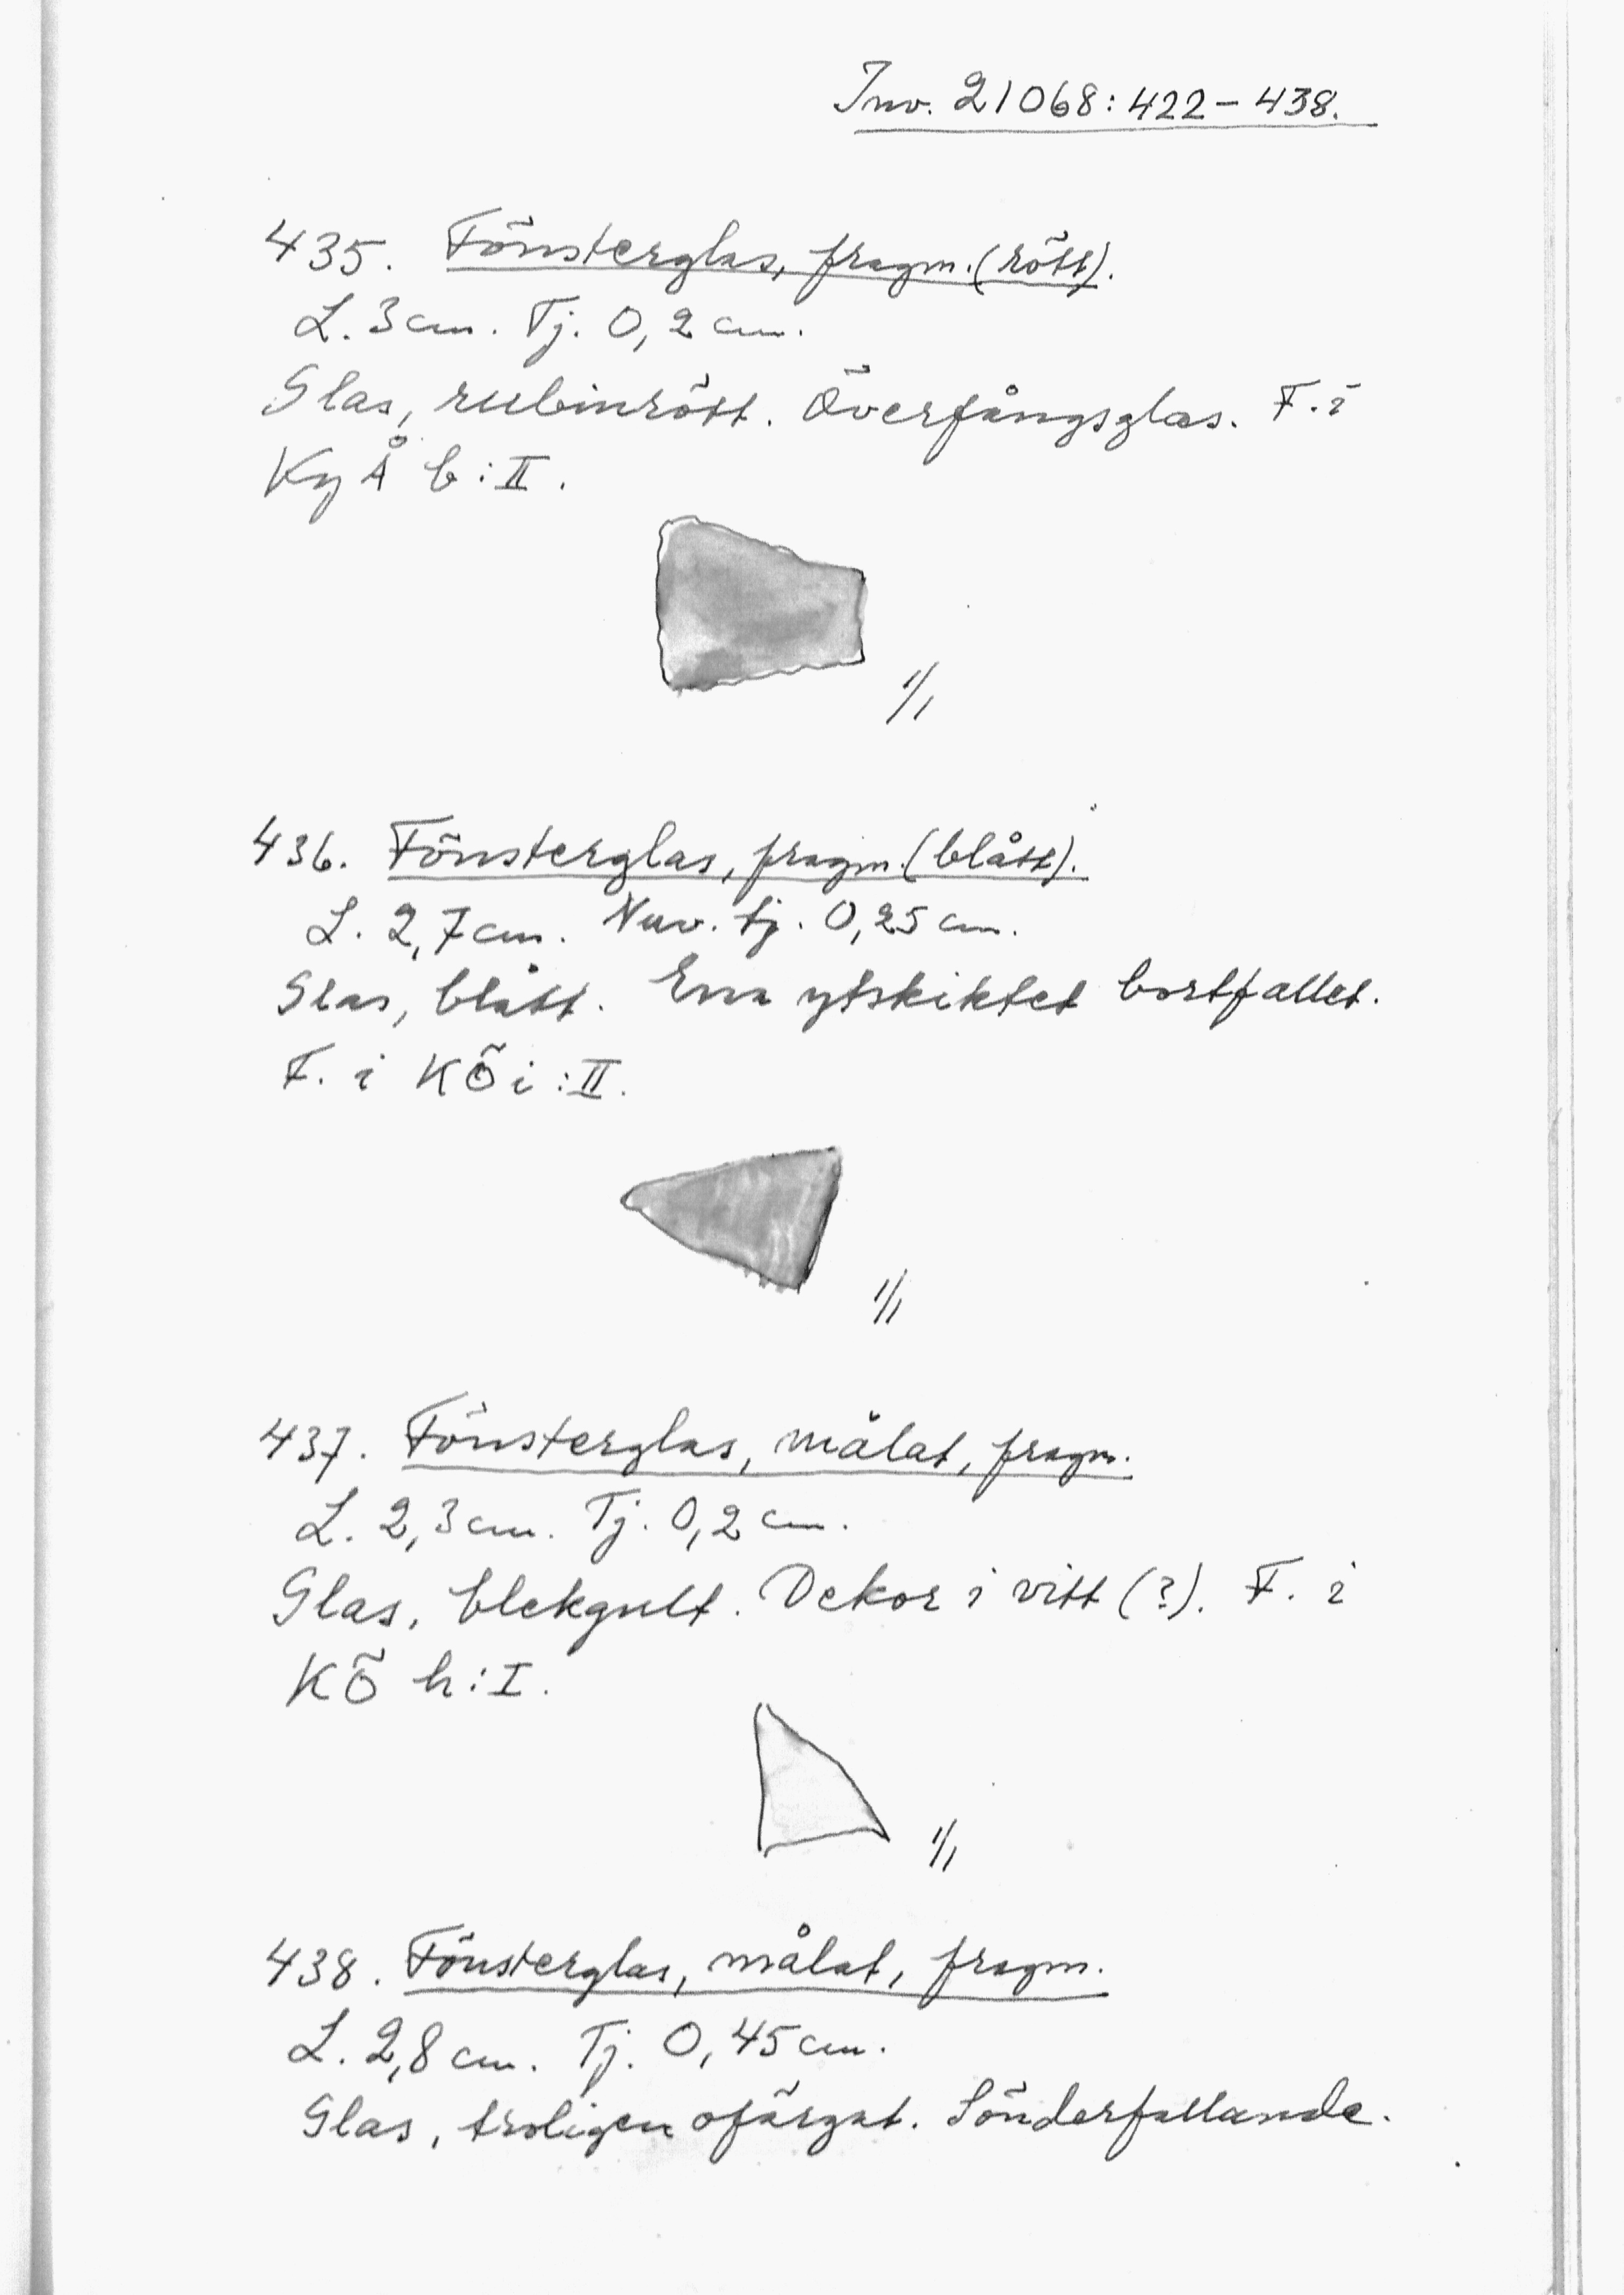 Inv. 21068:422-438.
435. Fönsterglas, fragm. (rött).
L. 3 cm. Tj. 0,2 cm.
Glas, rubinrött. Överfångsglas. F. i
Ky Å b:II.
1/1
436. Fönsterglas, fragm. (blått).
L. 2,7 cm. Nuv. tj. 0,25 cm.
Glas, blått. Ena ytskiktet bortfallet.
F. i KÖ i:II.
1/1
437. Fönsterglas, målat, fragm.
L. 2,3 cm. Tj. 0,2 cm.
Glas, blekgult. Dekor i vitt (?). F. i
KÖ h:I.
1/1
438. Fönsterglas, målat, fragm.
L. 2,8 cm. Tj. 0,45 cm.
Glas, troligen ofärgat. Sönderfallande.